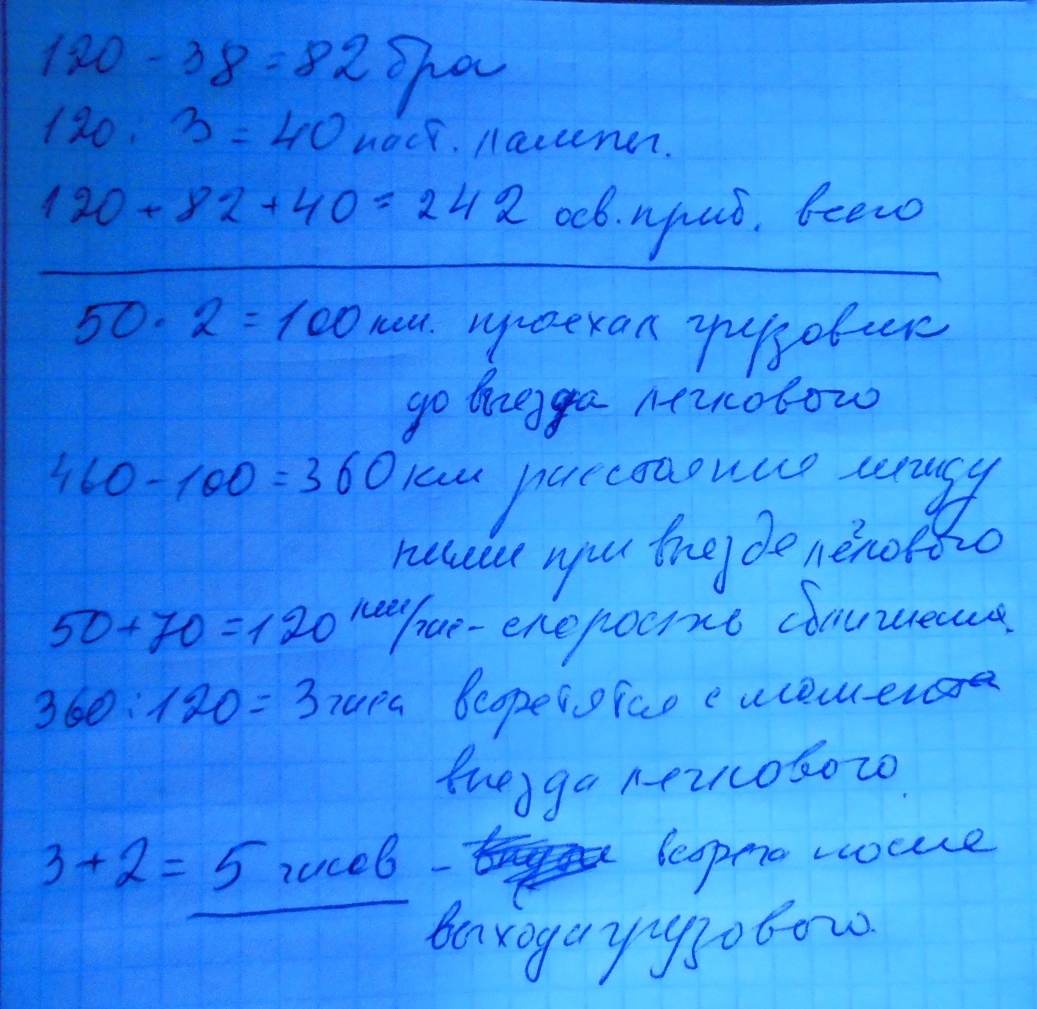 120 - 38 = 82 бра
120 : 3 = 40 наст. лампы.
120 + 82 + 40 = 242 осв. приб. всего
50 · 2 = 100 км. проехал грузовик
до выезда легкового
460 - 100 = 360 км расстояние между
ними при выезде лёгкового
50 + 70 = 120 км/час - скорость сближения.
360 : 120 = 3 часа встретятся с момента
выезда легкового.
3 + 2 = 5 часов - встреча после
выхода грузового.